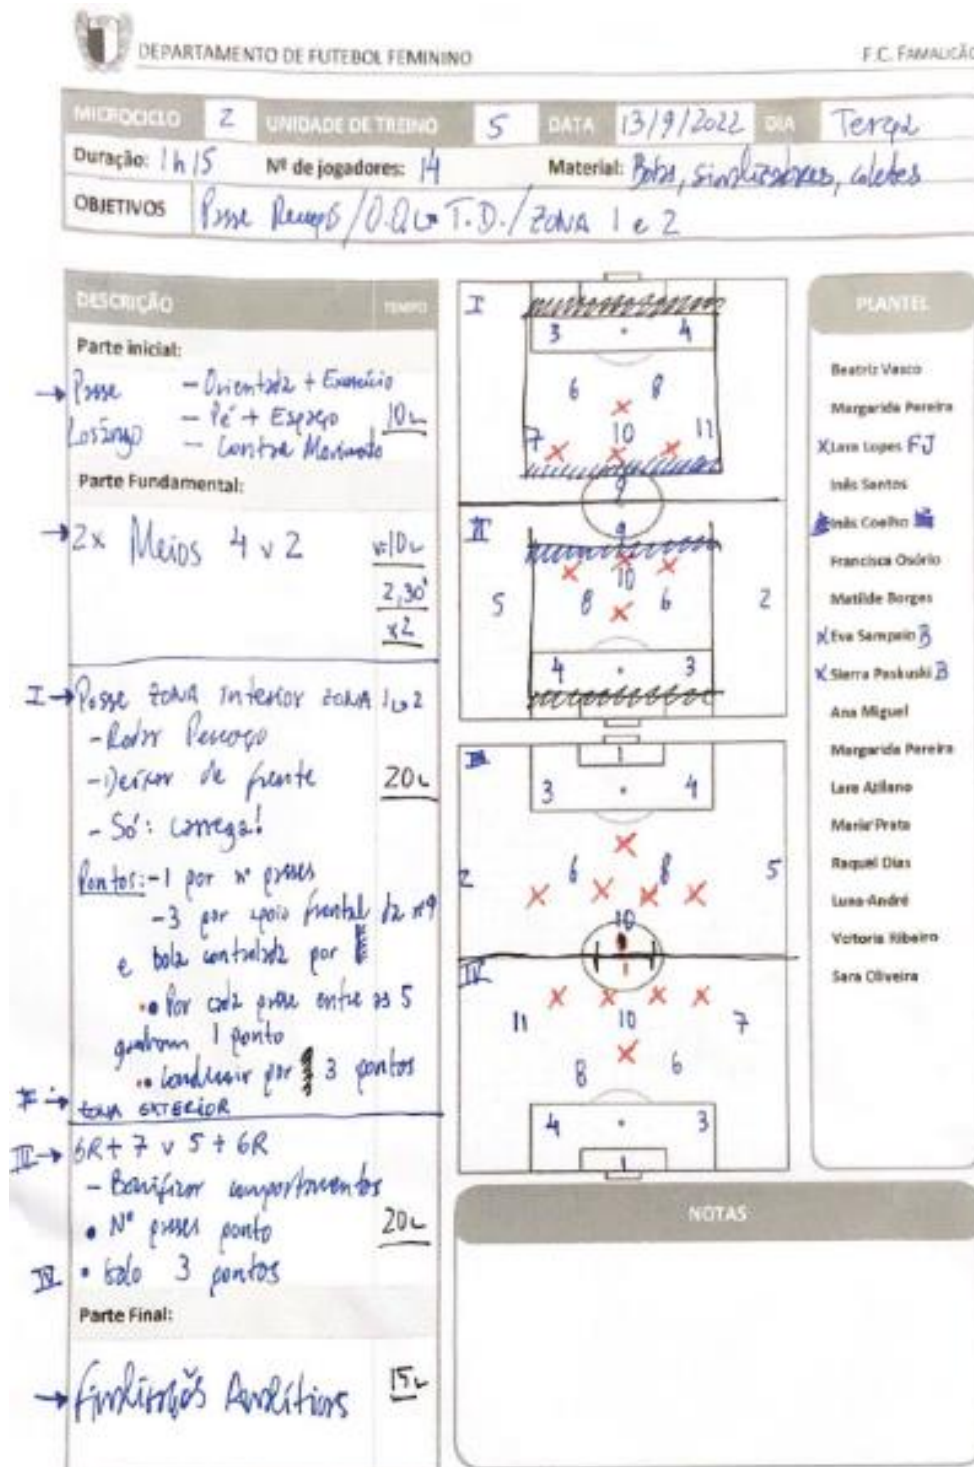 DEPARTAMENTO DE FUTEBOL FEMININO
F.C. FAMALICÃO
MICROCICLO 2 UNIDADE DE TREINO 5 DATA 13/9/2022 DIA Terça
Duração: 1h15 Nº de jogadores: 14 Material: Bolas, sinalizadores, coletes
OBJETIVOS Passe Receção / O.O. T.D. / ZONA 1 e 2
DESCRIÇÃO TEMPO
Parte inicial:
→ Passe - Orientada + Exercício
Losango - Pé + Espaço 10
- Contra Movimento
Parte Fundamental:
→ 2x Meios 4 v 2 10
2,30'
x2
I → Posse ZONA Interior ZONA 1 2
- Rodar
- Deixar de frente 20
- Só: carrega!
Pontos: - 1 por nº passes
- 3 por apoio frontal da nº9
e bola controlada por
• Por cada passe entre as 5
ganham 1 ponto
• Conduzir por 3 pontos
II → ZONA EXTERIOR
III → 6R + 7 v 5 + 6R
- Bonificar comportamentos
• Nº passes ponto 20
IV • Golo 3 pontos
Parte Final:
→ Finalizações Analíticas 15
I
3 4
6 8
7 10 11
9
II
9
10
5 8 6 2
4 3
III
1
3 4
2 6 8 5
10
IV
11 10 7
8 6
4 3
1
PLANTEL
Beatriz Vasco
Margarida Pereira
X Lara Lopes FJ
Inês Santos
Inês Coelho
Francisca Osório
Matilde Borges
X Eva Sampaio B
X Sierra Paskuski B
Ana Miguel
Margarida Pereira
Lara
Maria Prata
Raquel Dias
Luna André
Victoria Ribeiro
Sara Oliveira
NOTAS